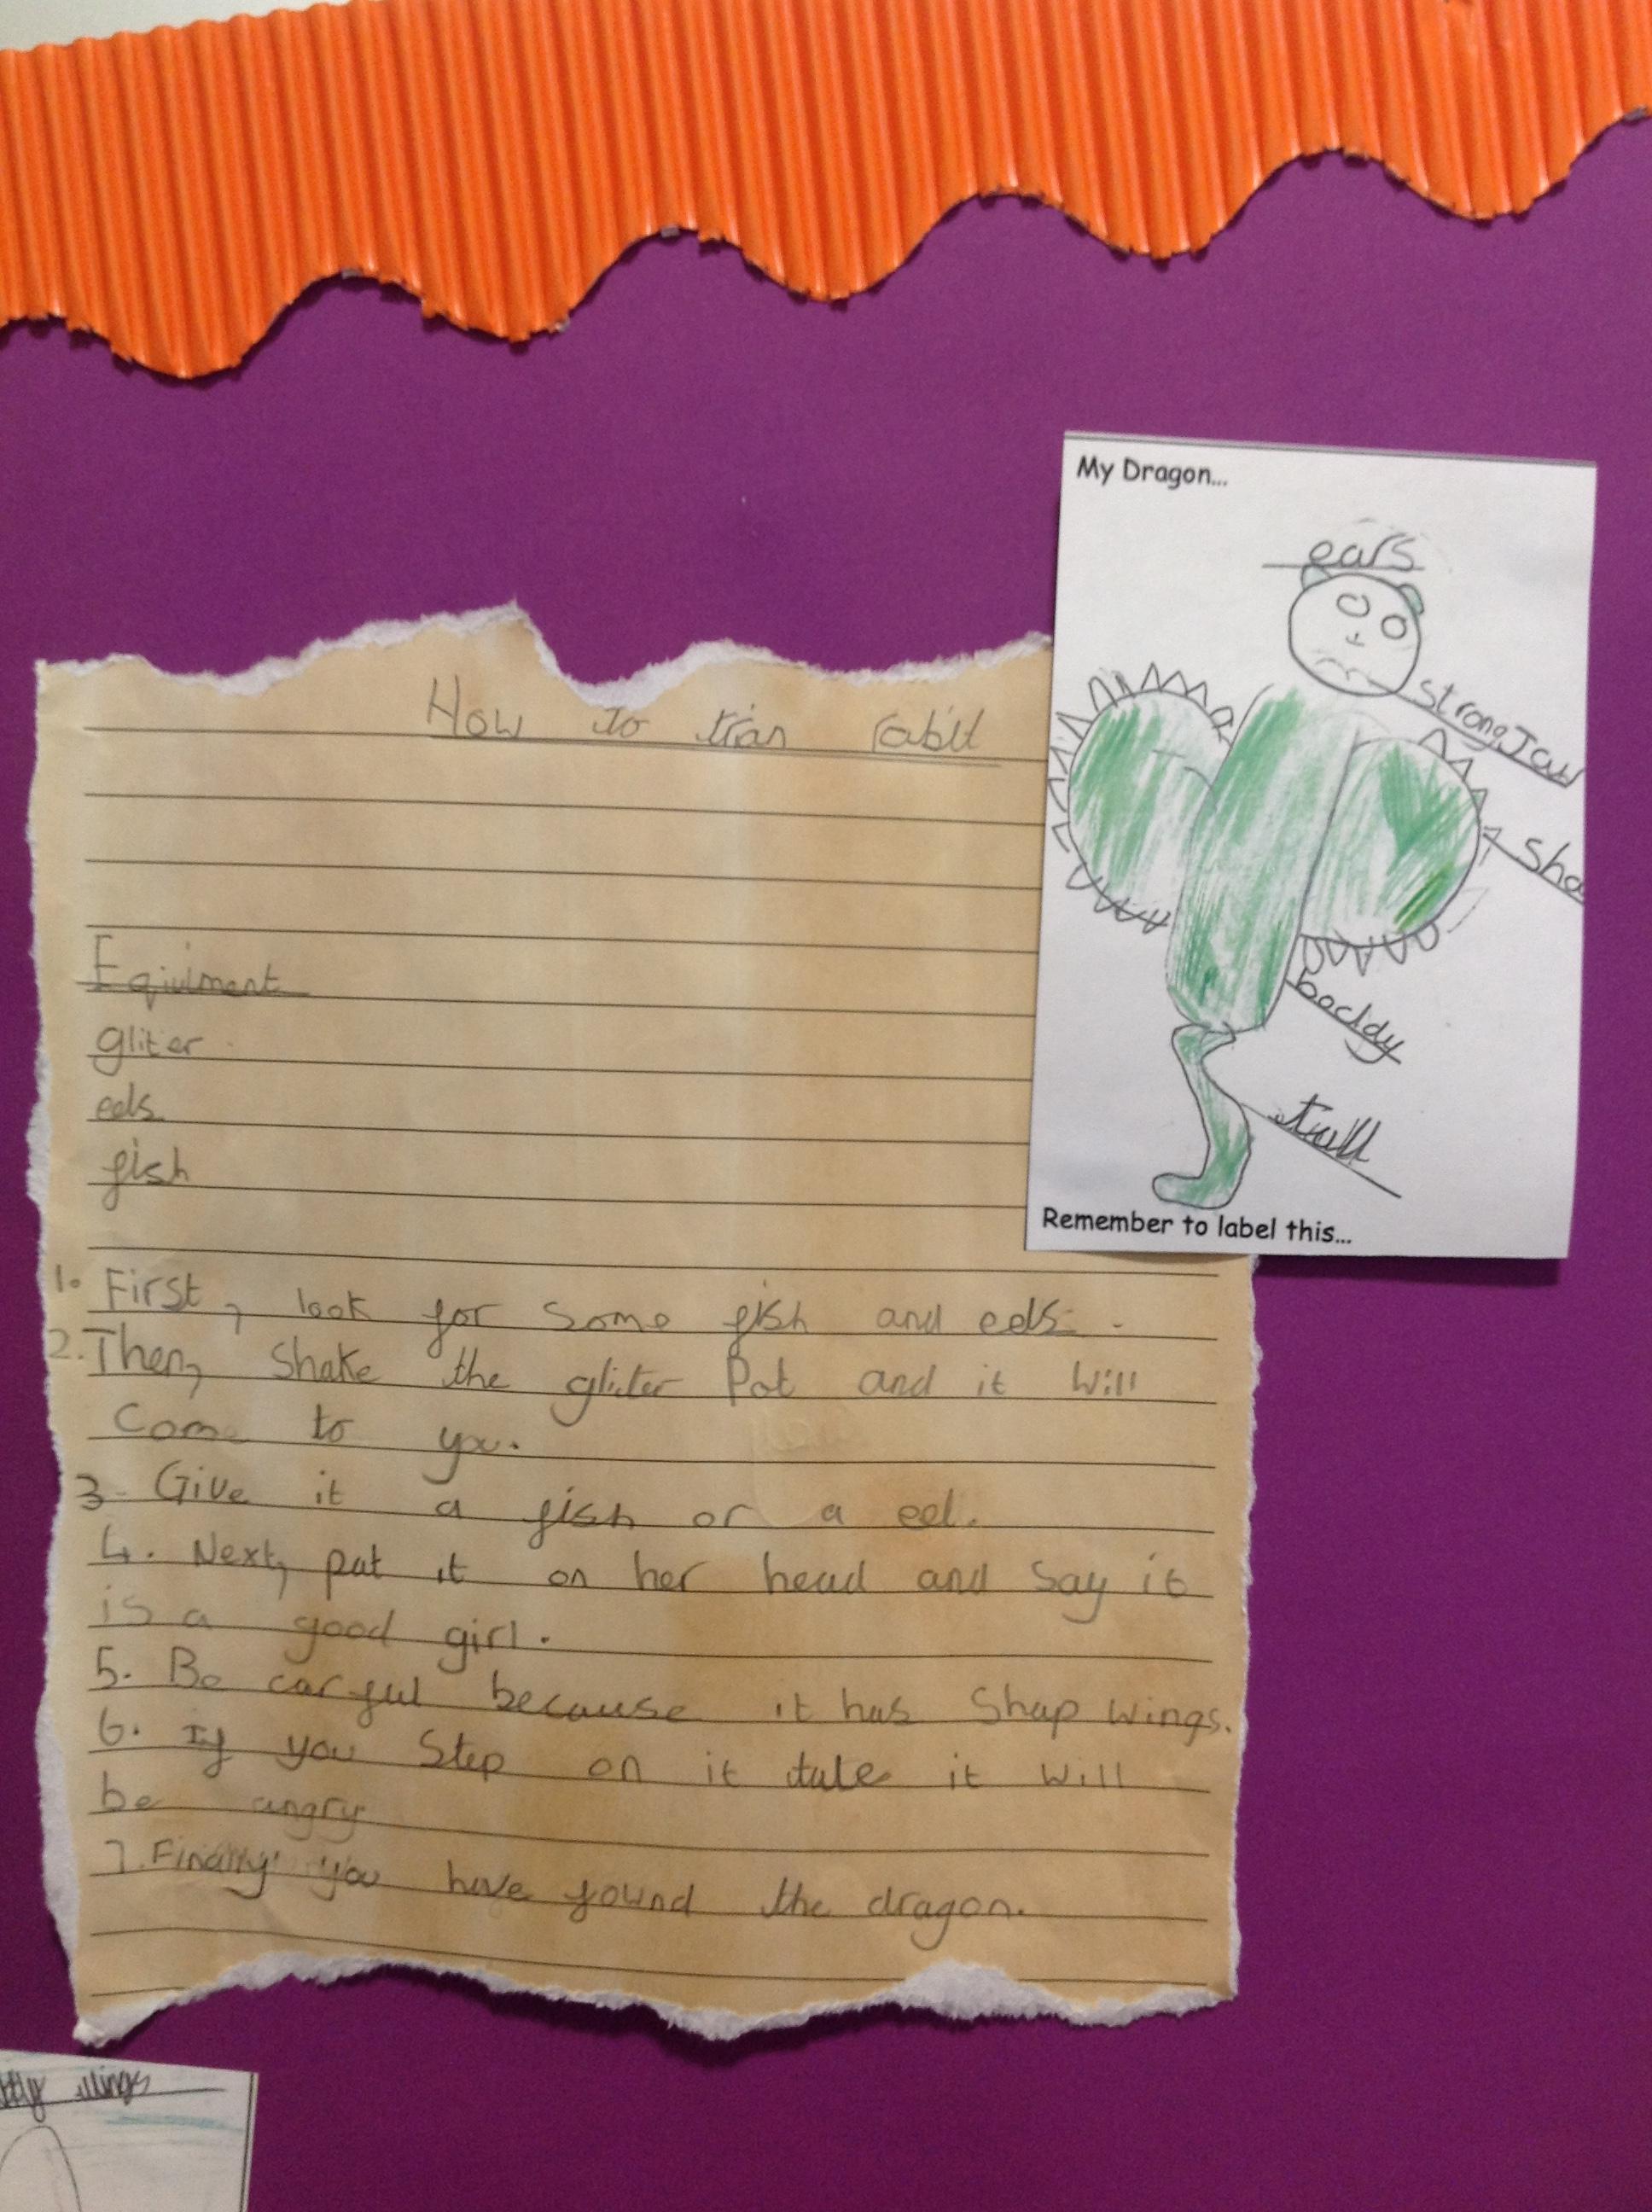 My Dragon...
ears
strong Jaw
sha
bocldy
How to tran rabit
Eqiulment
gliter
eels
fish
1. First, look for some fish and eels.
2. Then, Shake the gliter Pot and it will
Come to you.
3. Give it a fish or a eel.
4. Next, put it on her head and say it
is a good girl.
5. Be carful because it has Shap wings.
6. If you Step on it tale it will
be angry
7. Finally you have found the dragon.
Remember to label this...
wings